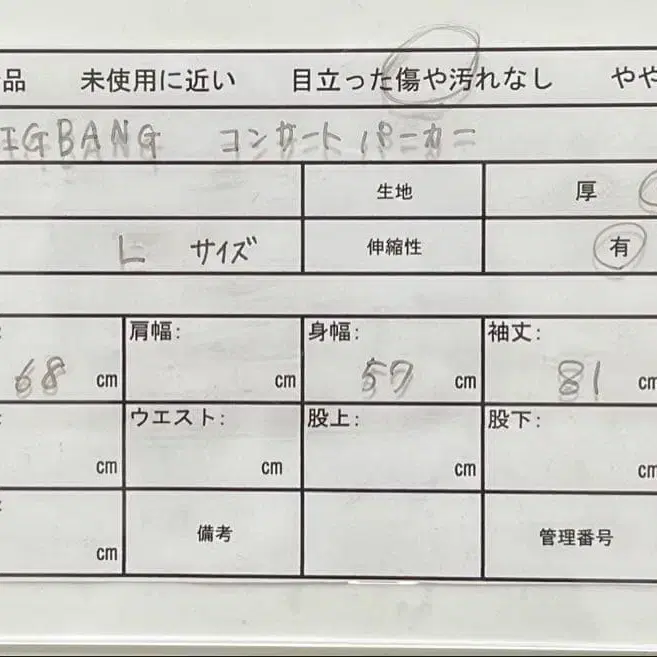 品 未使用に近い 目立った傷や汚れなし やや
IGBANG コンサートパーカー
生地 厚
L サイズ 伸縮性 有
肩幅: 身幅: 袖丈:
68 cm cm 57 cm 81 cm
ウエスト: 股上: 股下:
cm cm cm cm
cm 備考 管理番号